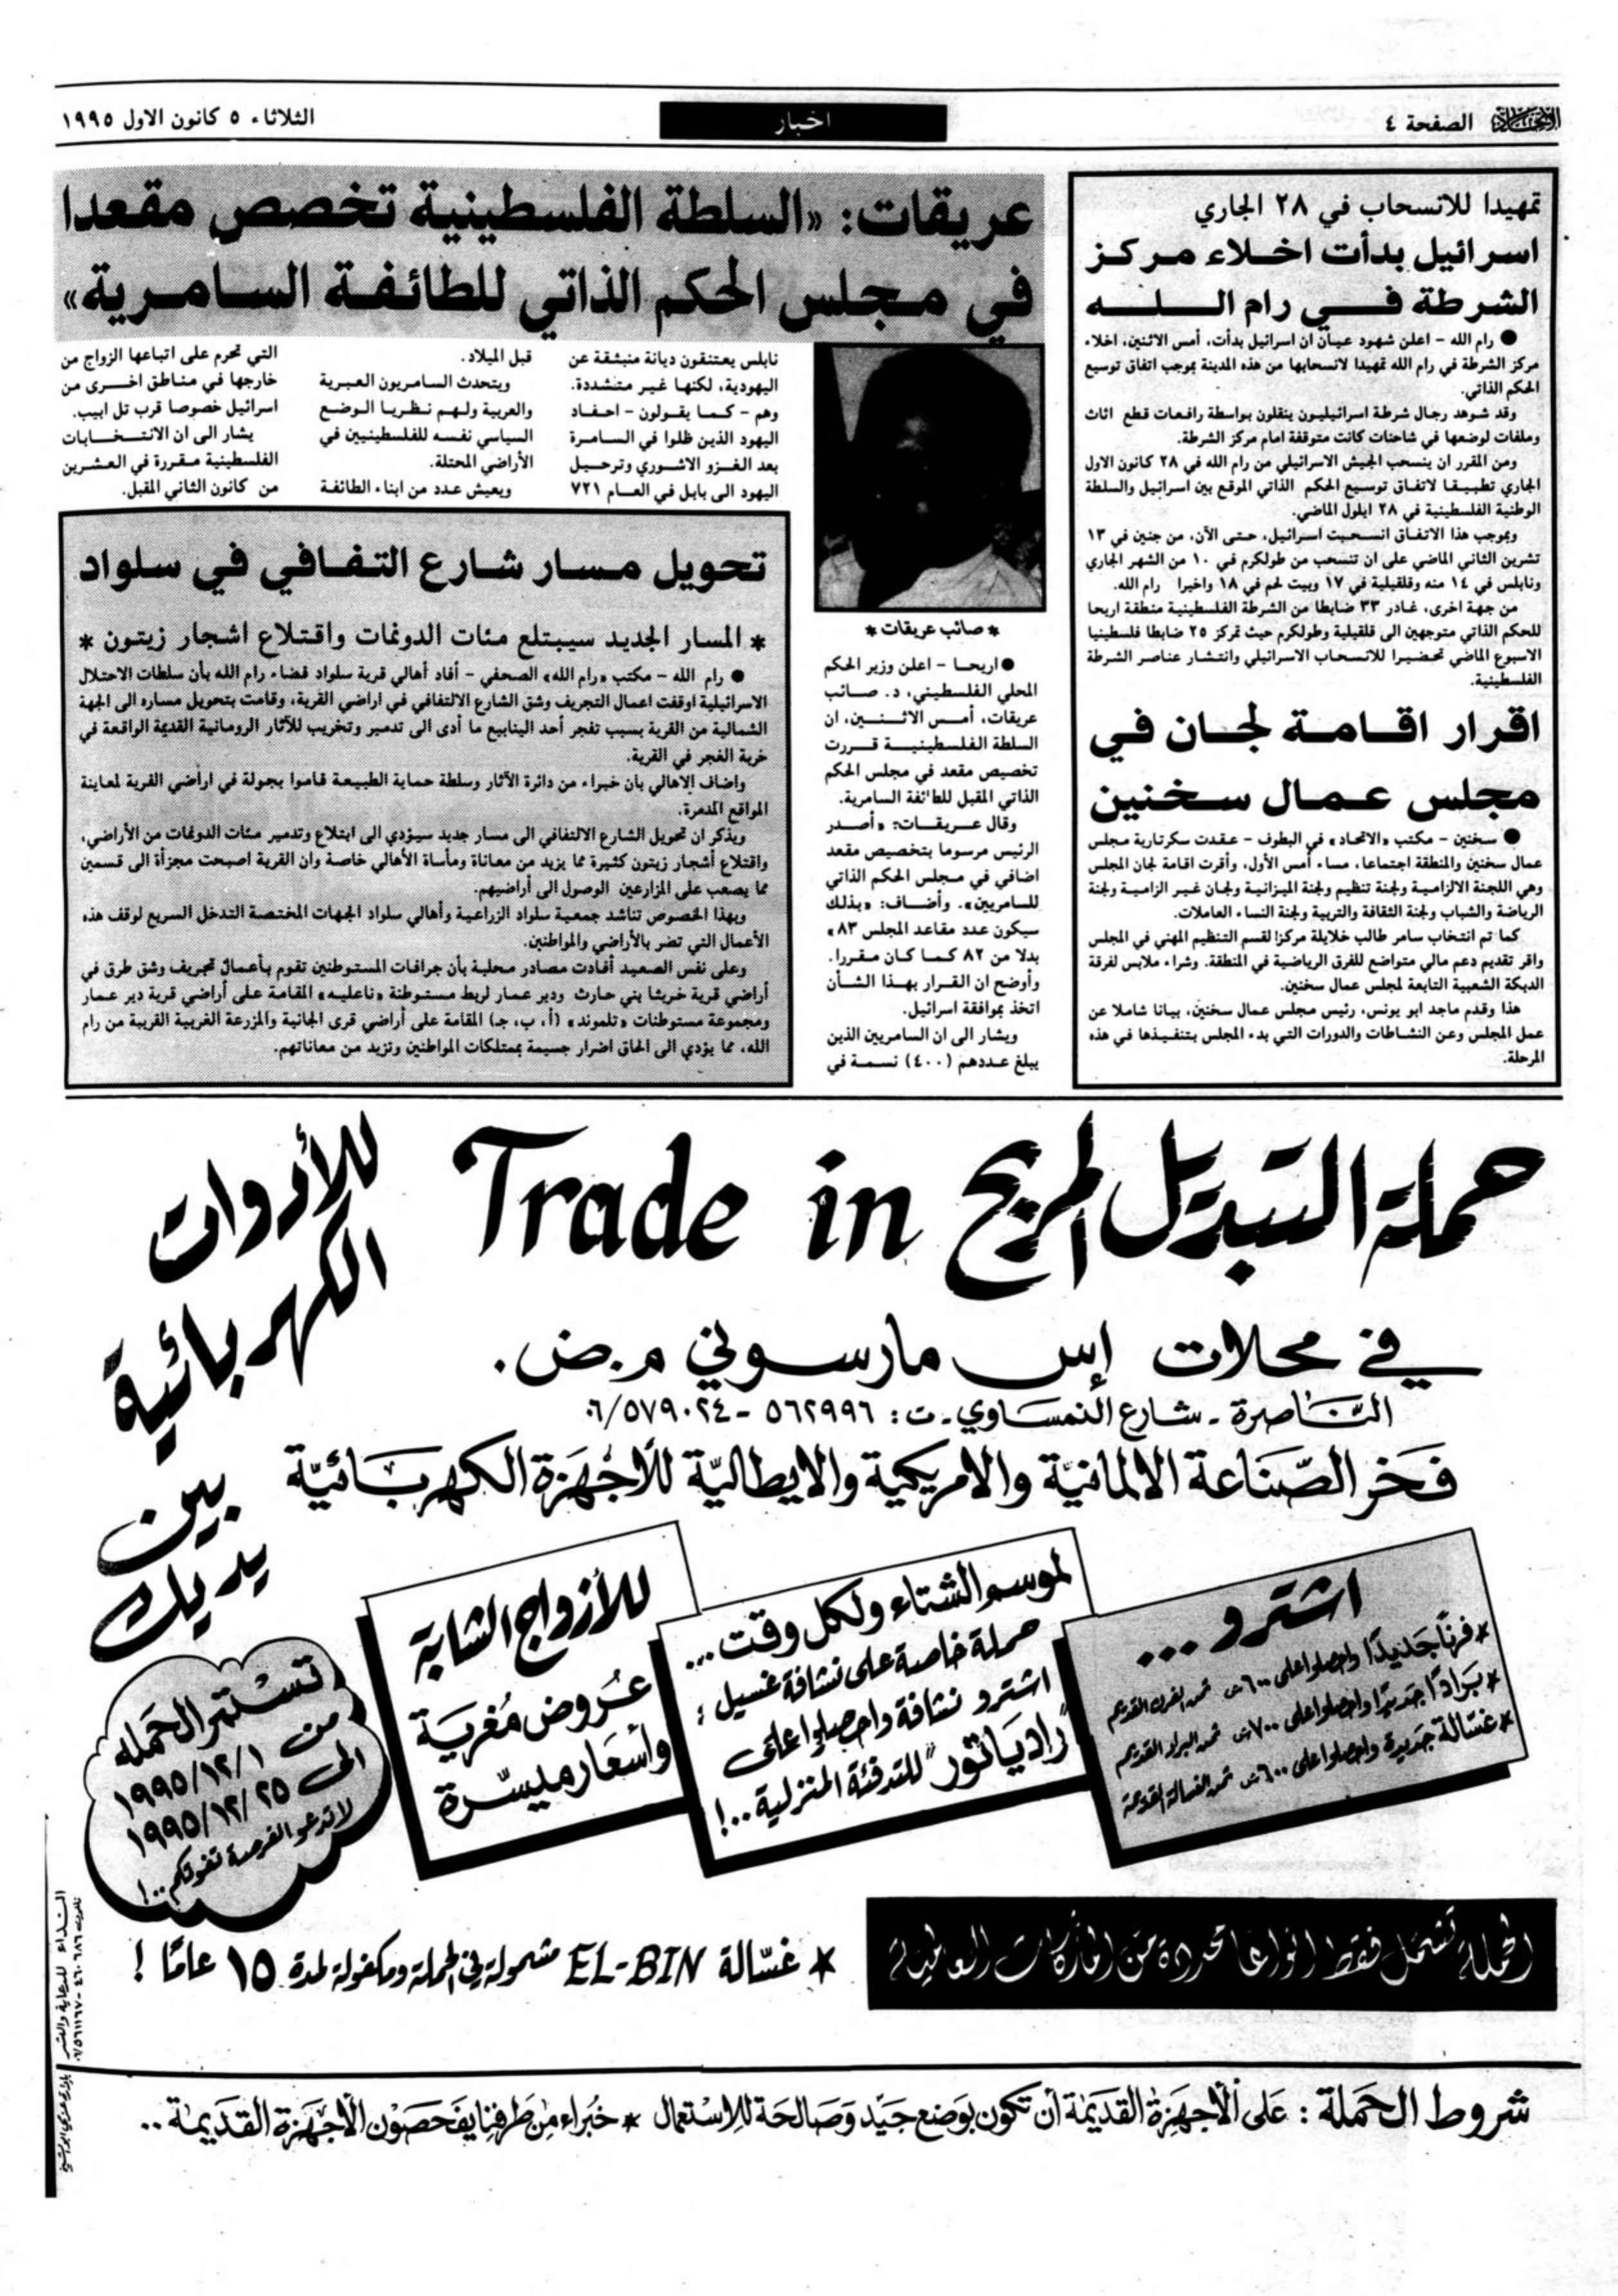 الاتحاد الصفحة ٤
اخبار
الثلاثاء ٥ كانون الاول ١٩٩٥
تمهيدا للانسحاب في ٢٨ الجاري
اسرائيل بدأت اخلاء مركز
الشرطة في رام الله
● رام الله - اعلن شهود عيان ان اسرائيل بدأت، أمس الاثنين، اخلاء
مركز الشرطة في رام الله تمهيدا لانسحابها من هذه المدينة بموجب اتفاق توسيع
الحكم الذاتي.
وقد شوهد رجال شرطة اسرائيليون ينقلون بواسطة رافعات قطع اثاث
وملفات لوضعها في شاحنات كانت متوقفة امام مركز الشرطة.
ومن المقرر ان ينسحب الجيش الاسرائيلي من رام الله في ٢٨ كانون الاول
الجاري تطبيقا لاتفاق توسيع الحكم الذاتي الموقع بين اسرائيل والسلطة
الوطنية الفلسطينية في ٢٨ ايلول الماضي.
وبموجب هذا الاتفاق انسحبت اسرائيل، حتى الآن، من جنين في ١٣
تشرين الثاني الماضي على ان تنسحب من طولكرم في ١٠ من الشهر الجاري
ونابلس في ١٤ منه وقلقيلية في ١٧ وبيت لحم في ١٨ واخيرا رام الله.
من جهة اخرى، غادر ٣٣ ضابطا من الشرطة الفلسطينية منطقة اريحا
للحكم الذاتي متوجهين الى قلقيلية وطولكرم حيث تمركز ٢٥ ضابطا فلسطينيا
الاسبوع الماضي تحضيرا للانسحاب الاسرائيلي وانتشار عناصر الشرطة
الفلسطينية.
اقرار اقامة لجان في
مجلس عمال سخنين
● سخنين - مكتب «الاتحاد» في البطوف - عقدت سكرتارية مجلس
عمال سخنين والمنطقة اجتماعا، مساء أمس الأول، وأقرت اقامة لجان المجلس
وهي اللجنة الالزامية ولجنة تنظيم ولجنة الميزانية ولجان غير الزامية ولجنة
الرياضة والشباب ولجنة الثقافة والتربية ولجنة النساء العاملات.
كما تم انتخاب سامر طالب خلايلة مركزا لقسم التنظيم المهني في المجلس
واقر تقديم دعم مالي متواضع للفرق الرياضية في المنطقة. وشراء ملابس لفرقة
الدبكة الشعبية التابعة لمجلس عمال سخنين.
هذا وقدم ماجد ابو يونس، رئيس مجلس عمال سخنين، بيانا شاملا عن
عمل المجلس وعن النشاطات والدورات التي بدء المجلس بتنفيذها في هذه
المرحلة.
عريقات: «السلطة الفلسطينية تخصص مقعدا
في مجلس الحكم الذاتي للطائفة السامرية»
* صائب عريقات *
● اريحا - اعلن وزير الحكم
المحلي الفلسطيني، د. صائب
عريقات، أمس الاثنين، ان
السلطة الفلسطينية قررت
تخصيص مقعد في مجلس الحكم
الذاتي المقبل للطائفة السامرية.
وقال عريقات: «أصدر
الرئيس مرسوما بتخصيص مقعد
اضافي في مجلس الحكم الذاتي
للسامريين». وأضاف: «بذلك
سيكون عدد مقاعد المجلس ٨٣»
بدلا من ٨٢ كما كان مقررا.
وأوضح ان القرار بهذا الشأن
اتخذ بموافقة اسرائيل.
ويشار الى ان السامريين الذين
يبلغ عددهم (٤٠٠) نسمة في
نابلس يعتنقون ديانة منبثقة عن
اليهودية، لكنها غير متشددة.
وهم - كما يقولون - احفاد
اليهود الذين ظلوا في السامرة
بعد الغزو الاشوري وترحيل
اليهود الى بابل في العام ٧٢١
قبل الميلاد.
ويتحدث السامريون العبرية
والعربية ولهم نظريا الوضع
السياسي نفسه للفلسطينيين في
الأراضي المحتلة.
ويعيش عدد من ابناء الطائفة
التي تحرم على اتباعها الزواج من
خارجها في مناطق اخرى من
اسرائيل خصوصا قرب تل ابيب.
يشار الى ان الانتخابات
الفلسطينية مقررة في العشرين
من كانون الثاني المقبل.
تحويل مسار شارع التفافي في سلواد
* المسار الجديد سيبتلع مئات الدونمات واقتلاع اشجار زيتون *
● رام الله - مكتب «رام الله» الصحفي - أفاد أهالي قرية سلواد قضاء رام الله بأن سلطات الاحتلال
الاسرائيلية اوقفت اعمال التجريف وشق الشارع الالتفافي في اراضي القرية، وقامت بتحويل مساره الى الجهة
الشمالية من القرية بسبب تفجر أحد الينابيع ما أدى الى تدمير وتخريب للآثار الرومانية القديمة الواقعة في
خربة الفجر في القرية.
واضاف الاهالي بأن خبراء من دائرة الآثار وسلطة حماية الطبيعة قاموا بجولة في اراضي القرية لمعاينة
المواقع المدمرة.
ويذكر ان تحويل الشارع الالتفافي الى مسار جديد سيؤدي الى ابتلاع وتدمير مئات الدونمات من الأراضي،
واقتلاع أشجار زيتون كثيرة مما يزيد من معاناة ومأساة الأهالي خاصة وان القرية اصبحت مجزأة الى قسمين
مما يصعب على المزارعين الوصول الى أراضيهم.
وبهذا الخصوص تناشد جمعية سلواد الزراعية وأهالي سلواد الجهات المختصة التدخل السريع لوقف هذه
الأعمال التي تضر بالأراضي والمواطنين.
وعلى نفس الصعيد أفادت مصادر محلية بأن جرافات المستوطنين تقوم بأعمال تجريف وشق طرق في
أراضي قرية خربثا بني حارث ودير عمار لربط مستوطنة «ناعليه» المقامة على أراضي قرية دير عمار
ومجموعة مستوطنات «تلموند» (أ، ب، جـ) المقامة على أراضي قرى الجانية والمزرعة الغربية القريبة من رام
الله، مما يؤدي الى الحاق اضرار جسيمة بممتلكات المواطنين وتزيد من معاناتهم.
حملة التبديل المربح Trade in
للأدوات
الكهربائية
بين
يديك
في محلات إس مارسوني م.ض.
النّاصرة - شارع النمساوي - ت: ٥٦٢٩٩٦ - ٠٦/٥٧٩٠٢٤
فخر الصّناعة الالمانيّة والامريكية والايطاليّة للأجهزة الكهربائيّة
اشترو...
* فرنًا جديدًا واحصلوا على ٦٠٠ش ثمن الفرن القديم
* برادًا جديدًا واحصلوا على ٧٠٠ش ثمن البراد القديم
* غسالة جديدة واحصلوا على ٦٠٠ش ثمن الغسالة القديمة
لموسم الشتاء ولكل وقت...
حملة خاصة على نشافة غسيل:
اشترو نشافة واحصلوا على
"رادياتور" للتدفئة المنزلية..!
للأزواج الشابة
عروض مغرية
وأسعار ميسّرة
تستمر الحملة
من ١٩٩٥/١٢/١
الى ١٩٩٥/١٢/٢٥
لا تدعو الفرصة تفوتكم..!
الحملة تشمل فقط انواعا محددة من الماركات العالمية
* غسّالة EL-BIN مشمولة في الحملة ومكفولة لمدة ١٥ عامًا !
النداء للدعاية والنشر
شروط الحملة: على الأجهزة القديمة أن تكون بوضع جيّد وصالحة للاستعمال * خبراء من طرفنا يفحصون الأجهزة القديمة..